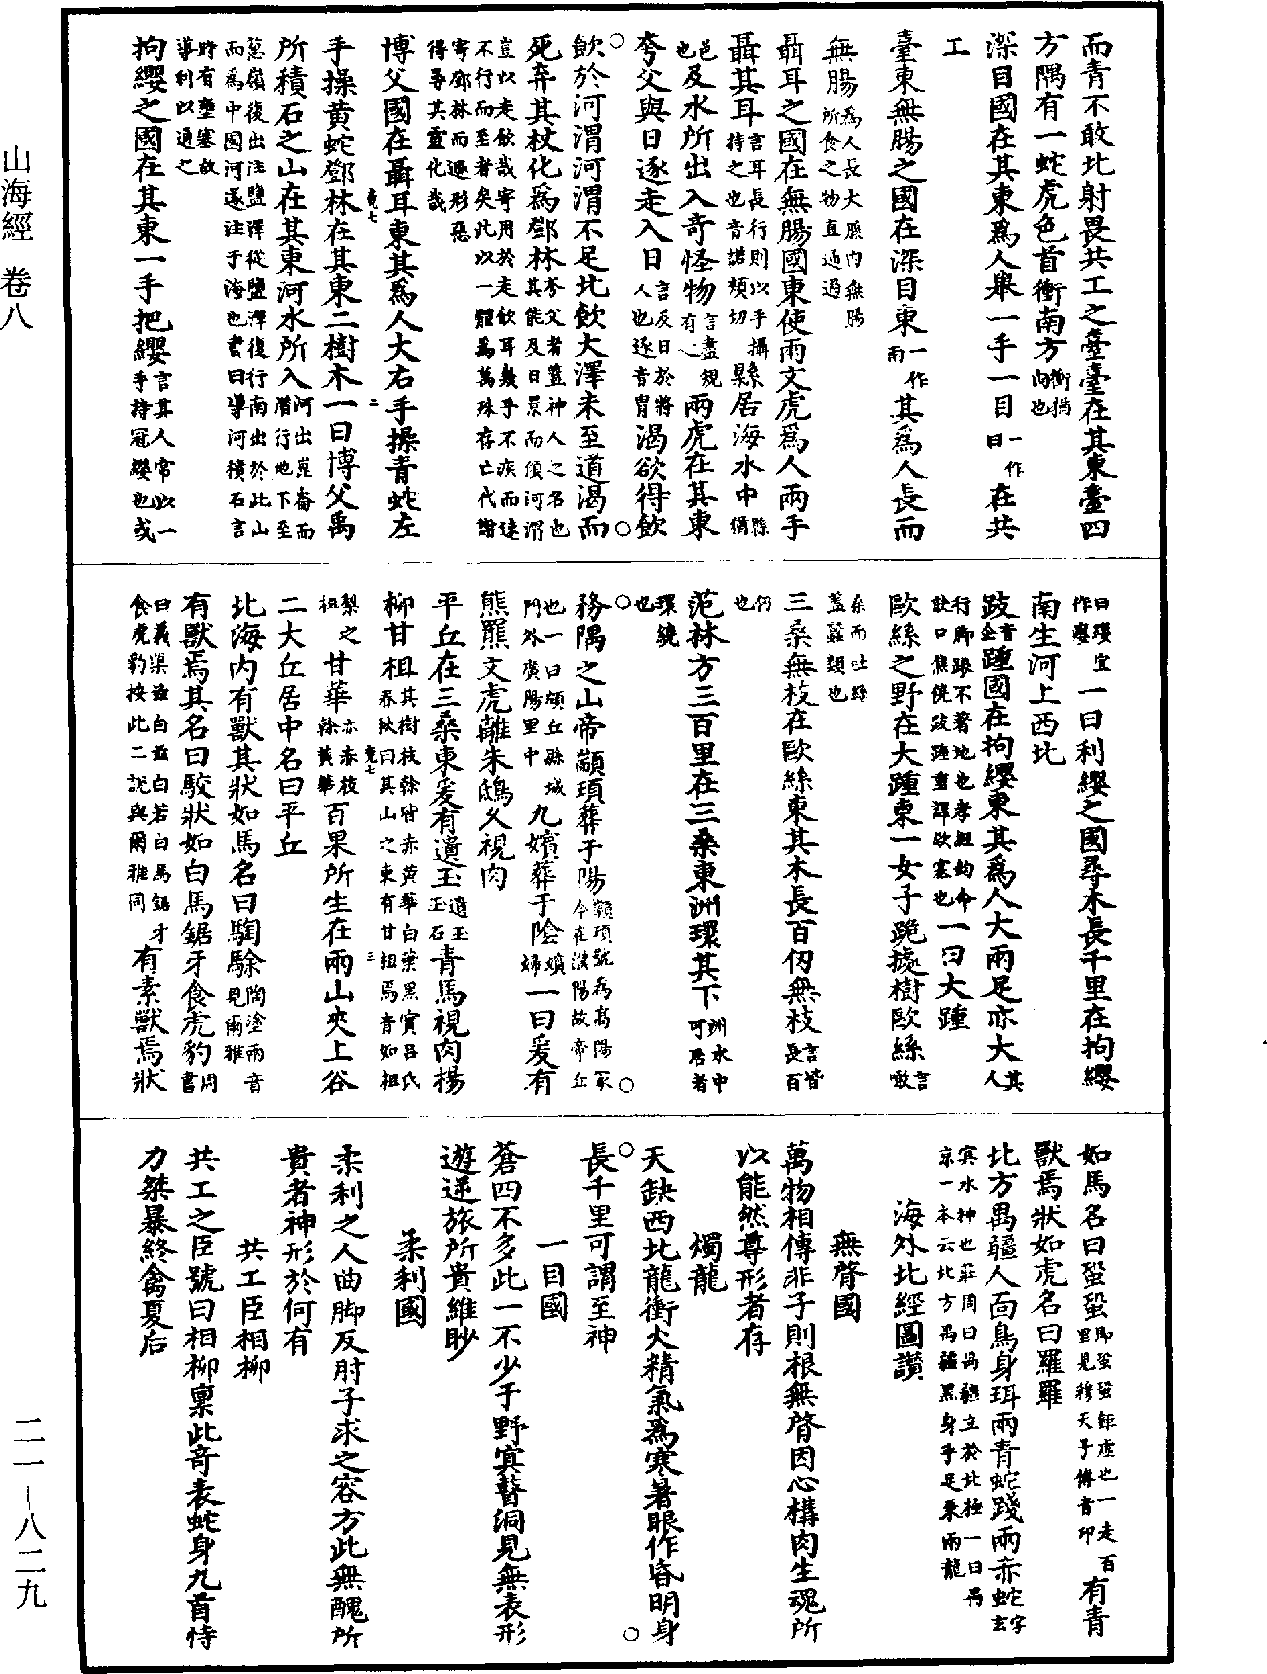 山海經 卷八
而青不敢北射畏共工之臺臺在其東臺四
方隅有一蛇虎色首衝南方衝猶向也
深目國在其東爲人舉一手一目一作曰在共
工
臺東無腸之國在深目東一作南其爲人長而
無腸爲人長大腹内無腸所食之物直通過
聶耳之國在無腸國東使兩文虎爲人兩手
聶其耳言耳長行則以手攝持之也音諾頰切縣居海水中縣猶
邑也及水所出入奇怪物言盡規有之兩虎在其東
夸父與日逐走入日言及日於將入也逐音胃渴欲得飲
飲於河渭河渭不足北飲大澤未至道渴而
死弃其杖化爲鄧林夸父者蓋神人之名也其能及日景而傾河渭
豈以走飲哉寄用於走飲耳幾乎不疾而速不行而至者矣此以一體爲萬殊存亡代謝
寄鄧林而遯形惡得尋其靈化哉
博父國在聶耳東其爲人大右手操青蛇左
手操黄蛇鄧林在其東二樹木一曰博父禹
所積石之山在其東河水所入河出崑崙而潛行地下至
葱嶺復出注鹽澤從鹽澤復行南出於此山而爲中國河遂注于海也書曰導河積石言
時有壅塞故導利以通之
拘纓之國在其東一手把纓言其人常以一手持冠纓也或
曰纓宜作癭一曰利纓之國尋木長千里在拘纓
南生河上西北
跂音企踵國在拘纓東其爲人大兩足亦大其人
行脚跟不著地也孝經鉤命訣曰焦僥跂踵重譯欵塞也一曰大踵
歐絲之野在大踵東一女子跪據樹歐絲言噉
桑而吐絲蓋蠶類也
三桑無枝在歐絲東其木長百仞無枝言皆長百
仞也
范林方三百里在三桑東洲環其下洲水中可居者
環繞也
務隅之山帝顓頊葬于陽顓頊號爲高陽冢今在濮陽故帝丘
也一曰頓丘縣城門外廣陽里中九嬪葬于陰嬪婦一曰爰有
熊羆文虎離朱鴟久視肉
平丘在三桑東爰有遺玉遺玉玉石青馬視肉楊
柳甘柤其樹枝幹皆赤黄華白葉黑實吕氏春秋曰其山之東有甘柤焉音如柤
棃之柤甘華亦赤枝幹黄華百果所生在兩山夾上谷
二大丘居中名曰平丘
北海内有獸其狀如馬名曰騊駼陶塗兩音見爾雅
有獸焉其名曰駮狀如白馬鋸牙食虎豹周書
曰義渠兹白兹白若白馬鋸牙食虎豹按此二説與爾雅同有素獸焉狀
如馬名曰蛩蛩即蛩蛩鉅虚也一走百里見穆天子傳音邛有青
獸焉狀如虎名曰羅羅
北方禺彊人面鳥身珥兩青蛇踐兩赤蛇字玄
冥水神也莊周曰禺彊立於北極一曰禺京一本云北方禺彊黑身手足乘兩龍
海外北經圖讚
無䏿國
萬物相傳非子則根無䏿因心構肉生魂所
以能然尊形者存
燭龍
天缺西北龍銜火精氣爲寒暑眼作昏明身
長千里可謂至神
一目國
蒼四不多此一不少于野冥瞽洞見無表形
遊逆旅所貴維眇
柔利國
柔利之人曲脚反肘子求之容方此無醜所
貴者神形於何有
共工臣相柳
共工之臣號曰相柳禀此奇表蛇身九首恃
力桀暴終禽夏后
二一—八二九